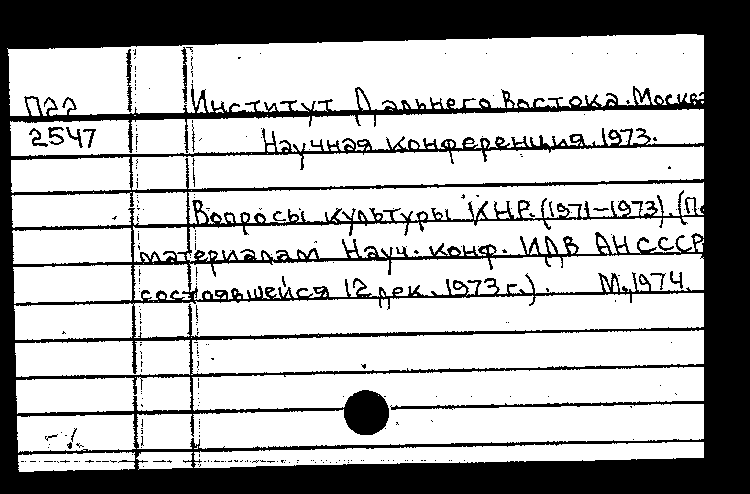 П22 Институт Дальнего Востока. Москва
2547 Научная конференция. 1973.
Вопросы культуры КНР. (1971–1973). (По
материалам Науч. конф. ИДВ АН СССР,
состоявшейся 12 дек. 1973 г.). М., 1974.